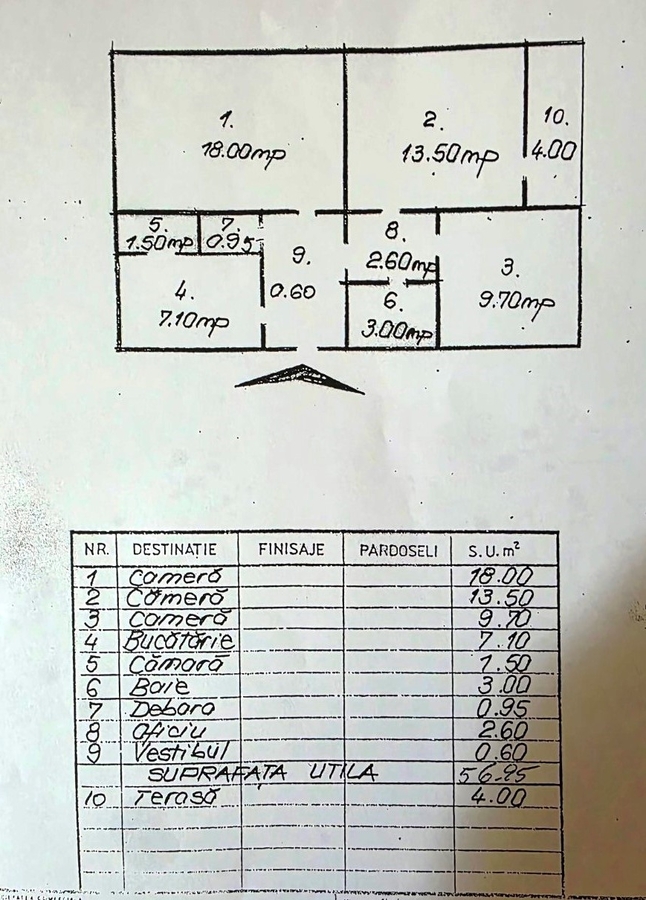 1.
18.00mp
2.
13.50mp
10.
4.00
5.
1.50mp
7.
0.95
9.
0.60
8.
2.60mp
3.
9.70mp
4.
7.10mp
6.
3.00mp
NR. DESTINAȚIE FINISAJE PARDOSELI S.U.m²
1 Cameră 18.00
2 Cămeră 13.50
3 Cameră 9.70
4 Bucătărie 7.10
5 Cămară 1.50
6 Baie 3.00
7 Debara 0.95
8 Oficiu 2.60
9 Vestibul 0.60
SUPRAFAȚA UTILA 56.95
10 Terasă 4.00